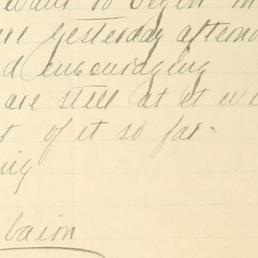 want to begin
yesterday afterno
d encouraging
are still at it we
t of it so far.